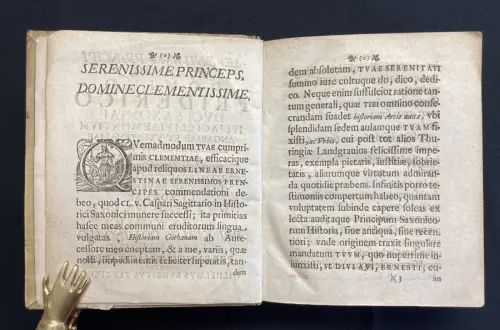 (o)
SERENISSIME PRINCEPS,
DOMINE CLEMENTISSIME,
QVemadmodum TUAE cumpri-
mis CLEMENTIAE, efficacique
apud reliquos LINEAE ERNE-
STINAE SERENISSIMOS PRIN-
CIPES commendationi de-
beo, quod CL. V. Caspari Sagittario in Histo-
rici Saxonici munere successi; ita primitias
hasce meas communi eruditorum lingua
vulgatas, Historiam Gothanam ab Ante-
cessore meo coeptam, & a me, variis, quae
nosti, impedimentis feliciter superatis, tan-
dem
(o)
dem absolutam, TVAE SERENITATI
summo iure cultuque do, dico, dedi-
co. Neque enim suffulcior ratione tan-
tum generali, quae TIBI omnino conse-
crandam suadet historiam Arcis auitae, vbi
splendidam sedem aulamque TVAM fi-
xisti, ac Vrbis, cui post tot alios Thu-
ringiae Landgrauios felicissime impe-
ras, exempla pietatis, iustitiae, sobrie-
tatis, aliarumque virtutum admiran-
da quotidie praebens. Infinitis porro te-
stimoniis compertum habeo, quantam
voluptatem subinde capere soleas ex
lecta auditaque Principum Saxonico-
rum Historia, siue antiqua, siue recen-
tiori; vnde originem traxit singulare
mandatum TVVM, quo nuperrime in-
iunxisti, vt DIVI ANI, ERNESTI, cu-
)( 3
ius